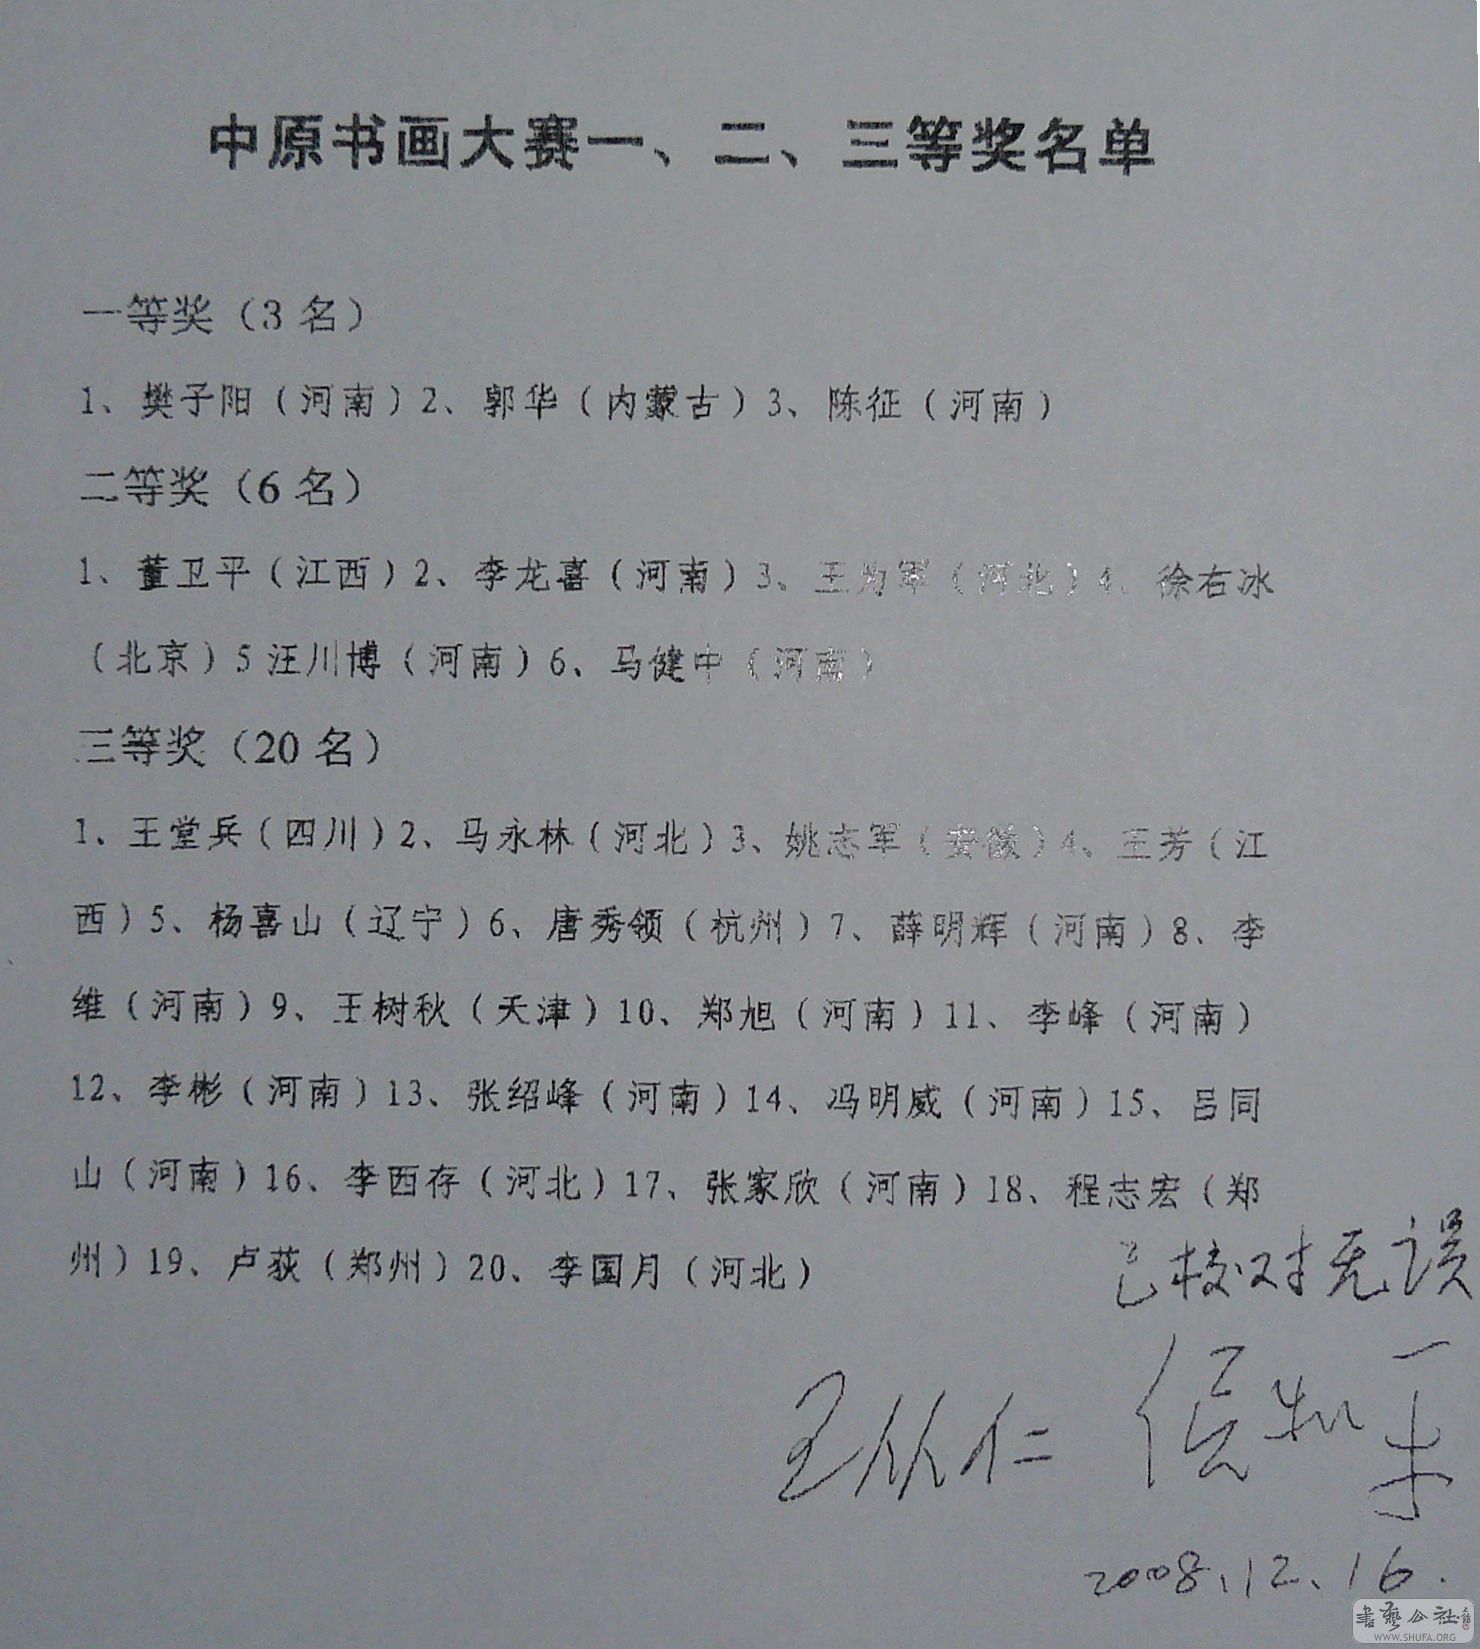 中原书画大赛一、二、三等奖名单
一等奖（3名）
1、樊子阳（河南）2、郭华（内蒙古）3、陈征（河南）
二等奖（6名）
1、董卫平（江西）2、李龙喜（河南）3、王为军（河北）4、徐右冰
（北京）5汪川博（河南）6、马健中（河南）
三等奖（20名）
1、王堂兵（四川）2、马永林（河北）3、姚志军（安徽）4、王芳（江
西）5、杨喜山（辽宁）6、唐秀领（杭州）7、薛明辉（河南）8、李
维（河南）9、王树秋（天津）10、郑旭（河南）11、李峰（河南）
12、李彬（河南）13、张绍峰（河南）14、冯明威（河南）15、吕同
山（河南）16、李西存（河北）17、张家欣（河南）18、程志宏（郑
州）19、卢荻（郑州）20、李国月（河北）
已校对无误
王从仁
2008.12.16.
書藝公社
WWW.SHUFA.ORG